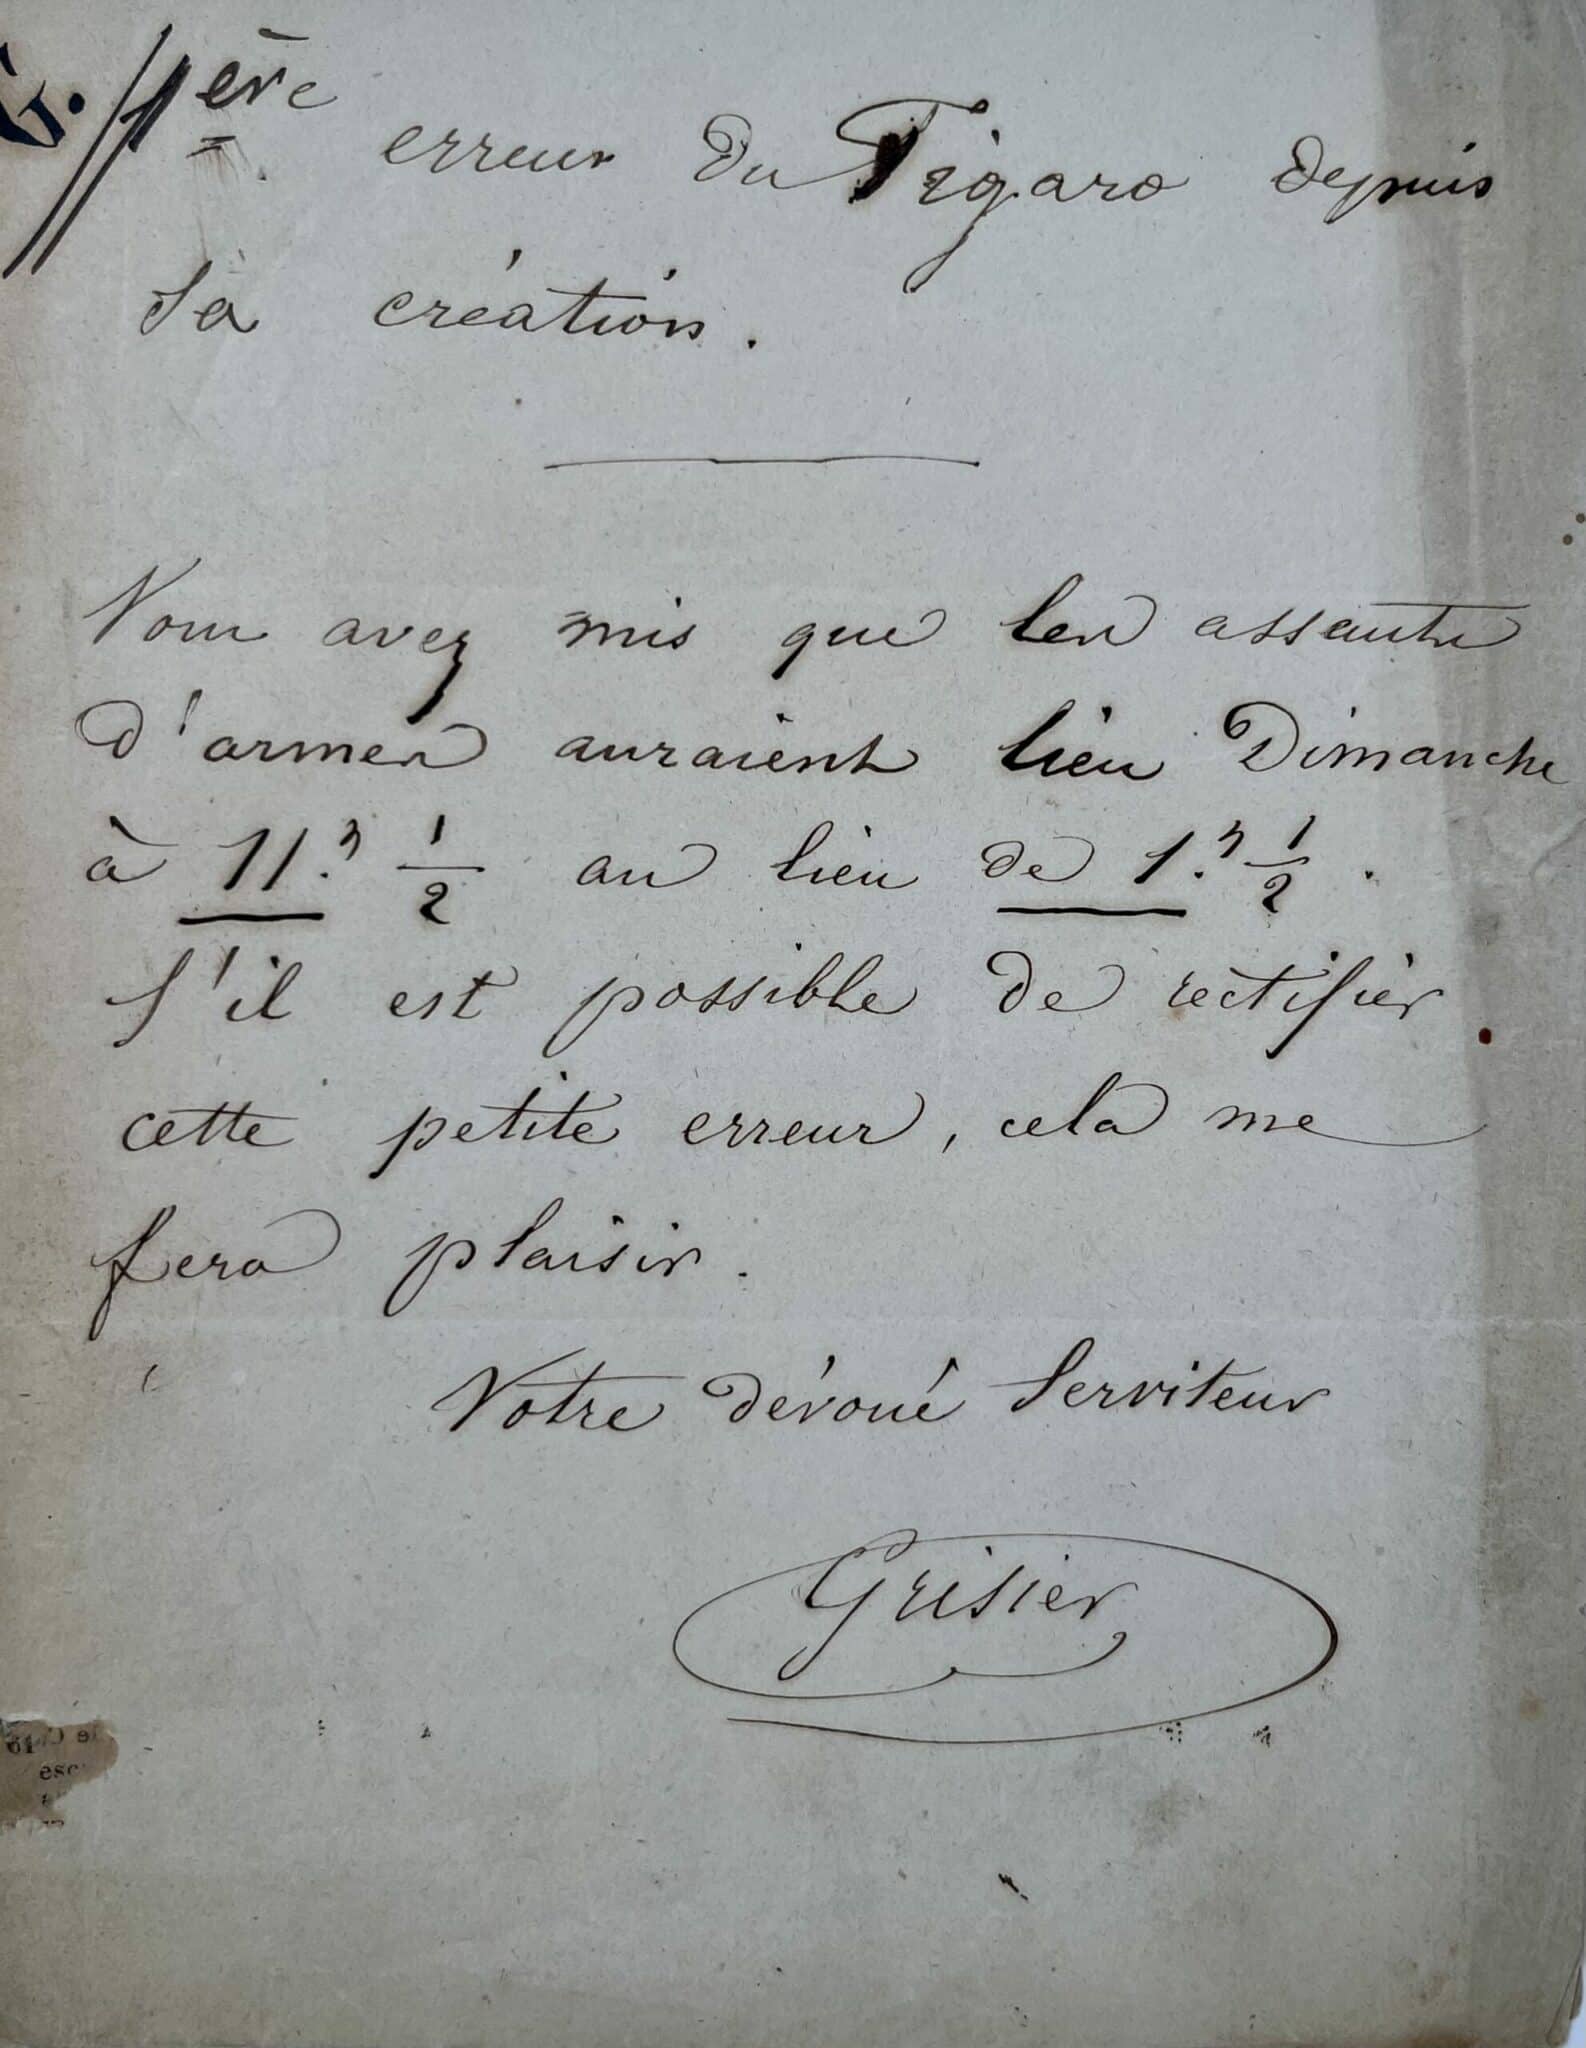 G. 1ère erreur du Figaro depuis
sa création.
Vous avez mis que les assauts
d'armes auraient lieu Dimanche
à 11.h 1/2 au lieu de 1.h 1/2.
S'il est possible de rectifier
cette petite erreur, cela me
fera plaisir.
Votre dévoué Serviteur
Grisier
esc